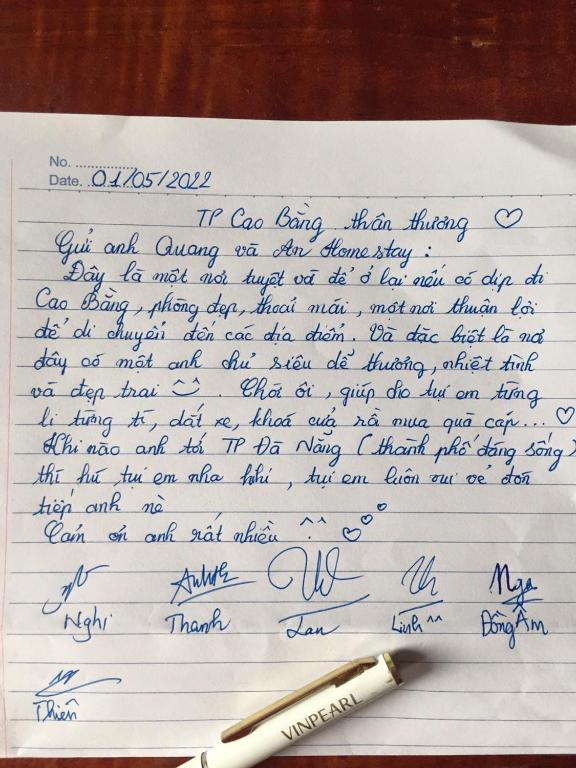 No. ................
Date. 01/05/2022
TP Cao Bằng thân thương ♡
Gửi anh Quang và An Homestay :
Đây là một nơi tuyệt vời để ở lại nếu có dịp đi
Cao Bằng, phòng đẹp, thoải mái, một nơi thuận lợi
để di chuyển đến các địa điểm. Và đặc biệt là nơi
đây có một anh chủ siêu dễ thương, nhiệt tình
và đẹp trai ^^ . Chời ôi, giúp cho tụi em từng
li từng tí, dắt xe, khoá cửa rồi mua quà cáp... ♡
Khi nào anh tới TP Đà Nẵng (thành phố đáng sống)
thì hú tụi em nha hihi, tụi em luôn vui vẻ đón
tiếp anh nè
Cám ơn anh rất nhiều ^^ ♡♡♡
Anhth Nga
Nghi Thanh Lan Linh^^ Đồng Âm
Thiên
VINPEARL